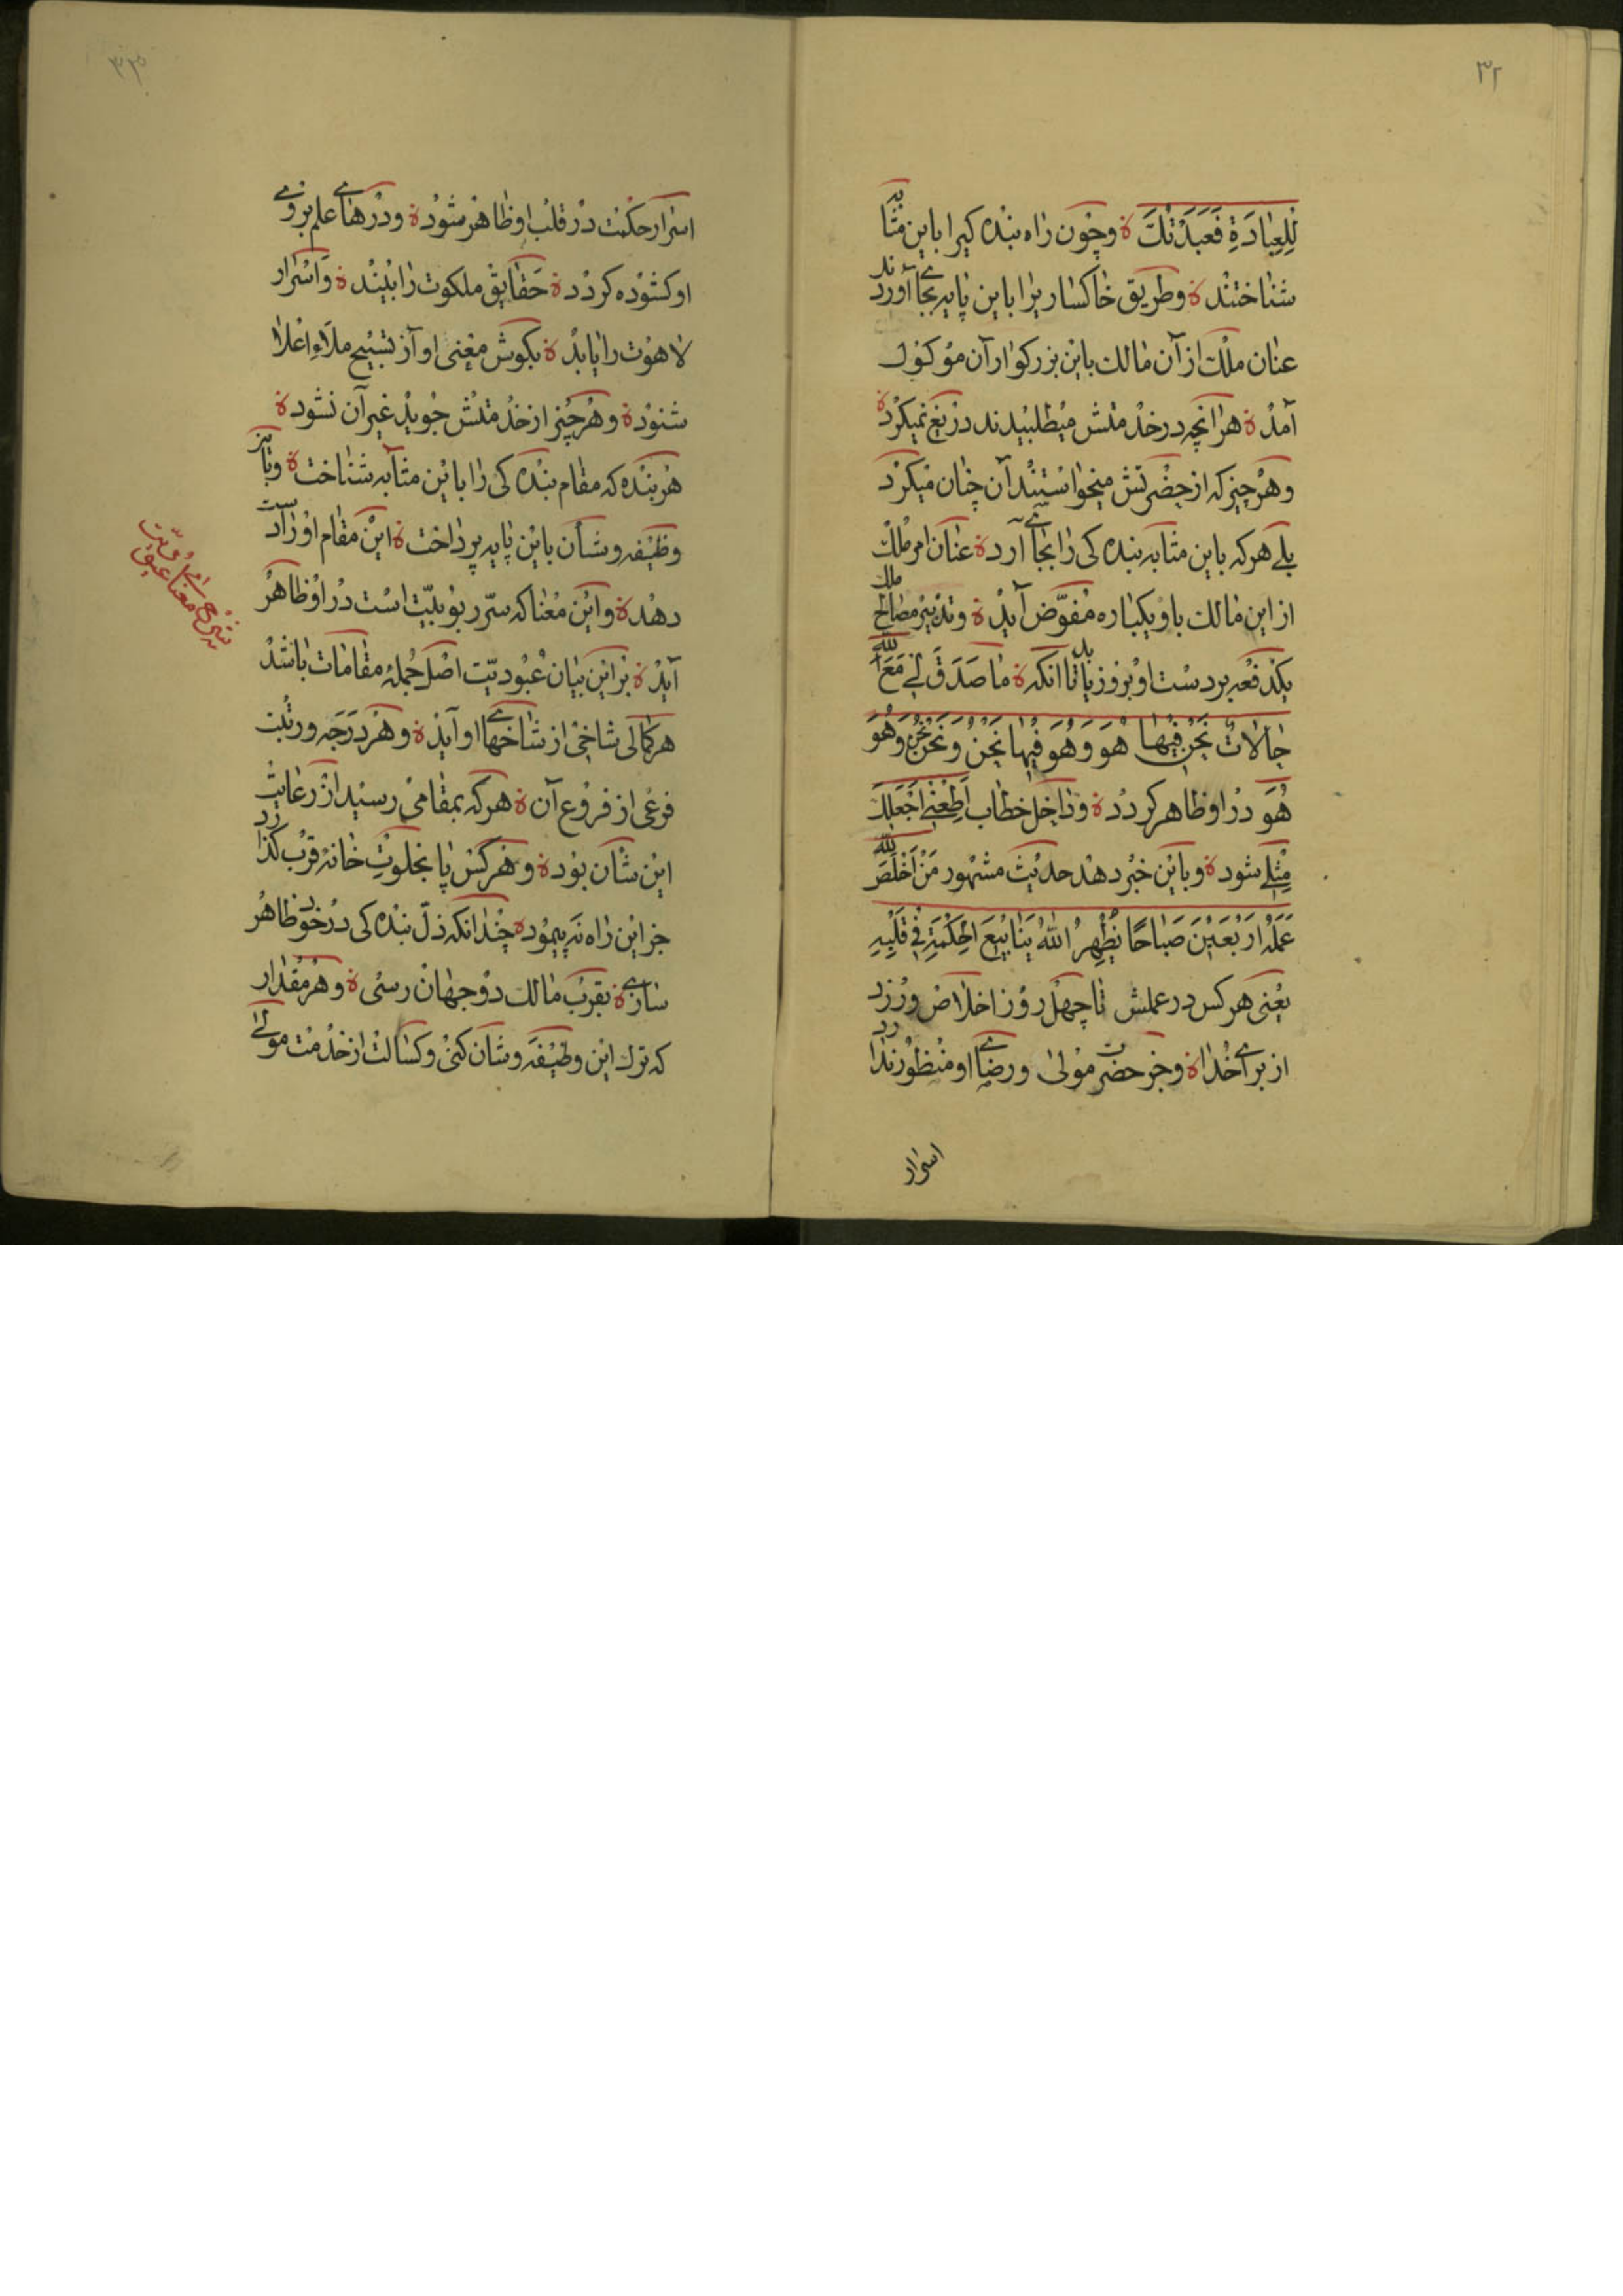 ۳۲
لِلْعِبَادَةِ فَعَبَدْتُكَ ة وچون راه بنده کیرا باین مثابه
شناختند ة وطریق خاکساریرا باین پایه بجای آوردند
عنان ملک از آن مالک باین بزرکوار آن موکول
آمد ة هر انچه در خدمتش میطلبیدند دریغ نمیکرد ة
وهر چیز که از حضرتش میخواستند آن چنان میکرد
بلے هرکه باین مثابه بنده کی را بجای آرد ة عنان امر ملک
از این مالک باو یکباره مفوّض آید ة وتدبیر مصالح ملک
یکدفعه بر دست او بروز یابد تا انکه ة مَا صَدَقَ لِی مَعَ اللّٰه
حالاتٌ نَحْنُ فِیْهَا هُوَ وَهُوَ فِیْهَا نَحْنُ وَنَحْنُ نَحْنُ وَهُوَ
هُوَ در او ظاهر کردد ة وداخل خطاب اَطِعْنِی اَجْعَلْكَ
مِثْلِی شود ة وباین خبر دهد حدیث مشهور مَنْ اَخْلَصَ لِلّٰه
عَمَلَهُ اَرْبَعِیْنَ صَبَاحًا یُظْهِرُ اللّٰهُ یَنَابِیْعَ الْحِکْمَةِ فِی قَلْبِهِ
یعنی هرکس در عملش تا چهل روز اخلاص ورزد
از برای خدا ة وجز حضرت مولی ورضای او منظور ندارد
اسرار
۳۳
اسرار حکمت در قلب او ظاهر شود ة ودرهای علم بروی
او کشوده کردد ة حقایق ملکوت را بیند ة واسرار
لاهوت را یابد ة بکوش معنی او آز تسبیح ملاء اعلا
شنود ة وهر چیز از خدمتش جوید غیر آن نشود ة
هر بنده که مقام بنده کی را باین مثابه شناخت ة وباین
وظیفه وشأن باین پایه پرداخت ة این مقام او را دست
دهد ة واین معنا که سرّ ربوبیّت است در او ظاهر
آید ة بر این بیان عبودیّت اصل جملهٔ مقامات باشد
هر کمالی شاخی از شاخهای او آید ة وهر درجه ورتبت
فرعی از فروع آن ة هرکه بمقامی رسید از رعایت
این شأن بود ة وهرکس پا بخلوت خانهٔ قرب کذارد
جز این راه نه پیمود ة چندانکه ذلّ بنده کی در خود ظاهر
سازی ة بقرب مالک دو جهان رسی ة وهر مقدار
که ترک این وظیفه وشان کنی وکسالت از خدمت مولی
شرح معنا عبق